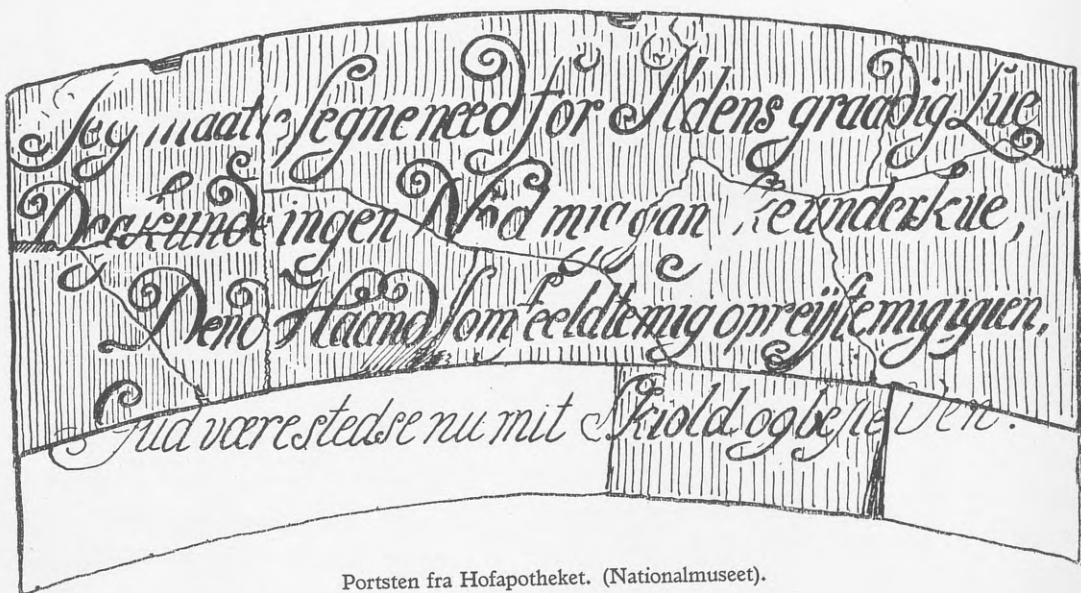 Jeg maatte segne need for Ildens graadig Lue
Dog kunde ingen Nød mig gan underkue,
Dend Haand som feeldte mig opreijste mig igien,
Gud være stedse nu mit Skiold og beste Ven.
Portsten fra Hofapotheket. (Nationalmuseet).